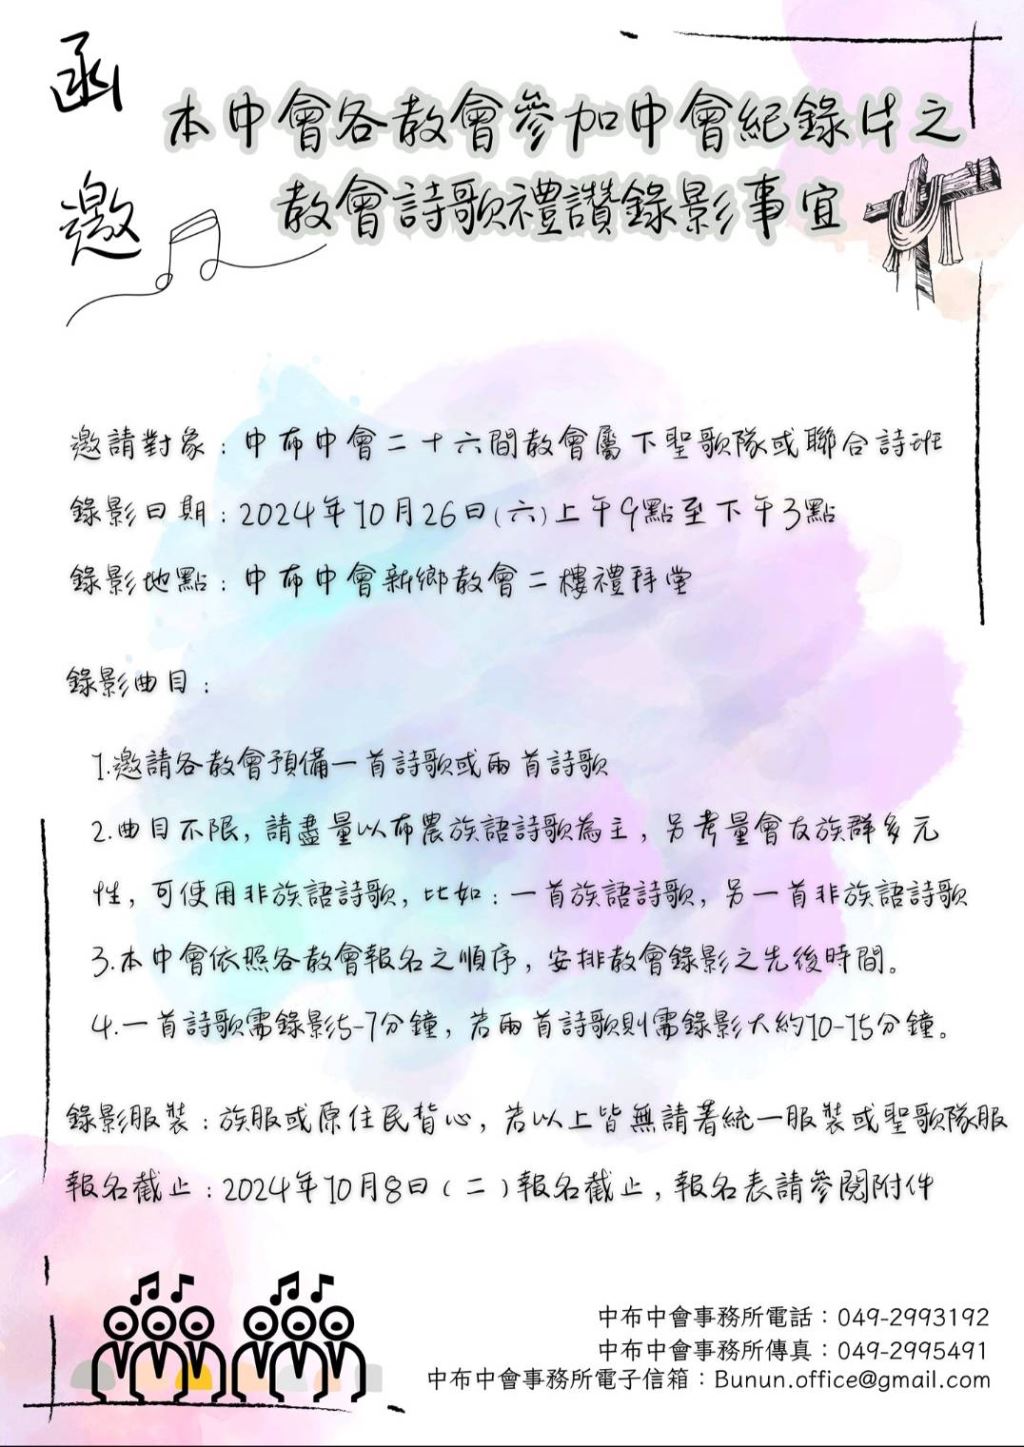 函邀
本中會各教會參加中會紀錄片之
教會詩歌禮讚錄影事宜
邀請對象：中布中會二十六間教會屬下聖歌隊或聯合詩班
錄影日期：2024年10月26日(六)上午9點至下午3點
錄影地點：中布中會新鄉教會二樓禮拜堂
錄影曲目：
1.邀請各教會預備一首詩歌或兩首詩歌
2.曲目不限，請盡量以布農族語詩歌為主，另考量會友族群多元
性，可使用非族語詩歌，比如：一首族語詩歌，另一首非族語詩歌
3.本中會依照各教會報名之順序，安排教會錄影之先後時間。
4.一首詩歌需錄影5-7分鐘，若兩首詩歌則需錄影大約10-15分鐘。
錄影服裝：族服或原住民背心，若以上皆無請著統一服裝或聖歌隊服
報名截止：2024年10月8日(二)報名截止，報名表請參閱附件
中布中會事務所電話：049-2993192
中布中會事務所傳真：049-2995491
中布中會事務所電子信箱：Bunun.office@gmail.com